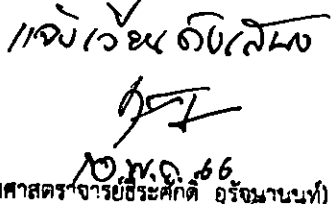 แจ้งเวียน ดังเสนอ
10 พ.ค. 66
ศาสตราจารย์ธีระศักดิ์ อุรัจนานนท์)